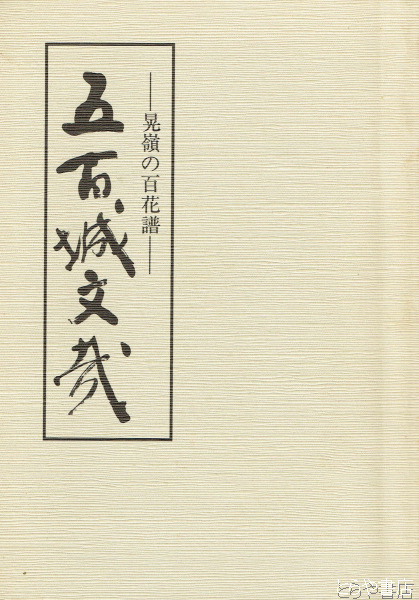 ―晃嶺の百花譜―
五百城文哉
とうや書店